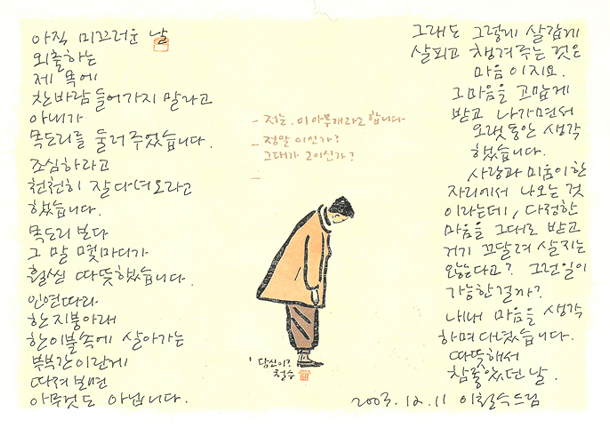 아직 미끄러운 날
외출하는
제 목에
찬바람 들어가지 말라고
아내가
목도리를 둘러 주었습니다.
조심하라고
천천히 잘 다녀오라고
했습니다.
목도리 보다
그 말 몇마디가
훨씬 따뜻했습니다.
인연따라
한지붕아래
한이불속에 살아가는
부부간이란게
따져보면
아무것도 아닙니다.
- 저는. 이아무개라고 합니다
- 정말 이인가?
그대가 그이신가?
-
' 당신이?
철수
그래도 그렇게 살갑게
살피고 챙겨주는 것은
마음이지요.
그마음을 고맙게
받고 나가면서
오랫동안 생각
했습니다.
사랑과 미움이 한
자리에서 나오는 것
이라는데, 다정한
마음을 그대로 받고
거기 끄달려 살지는
않는다고? 그런일이
가능한걸까?
내내 마음을 생각
하며 다녔습니다.
따뜻해서
참좋았던 날.
2003.12.11 이철수드림